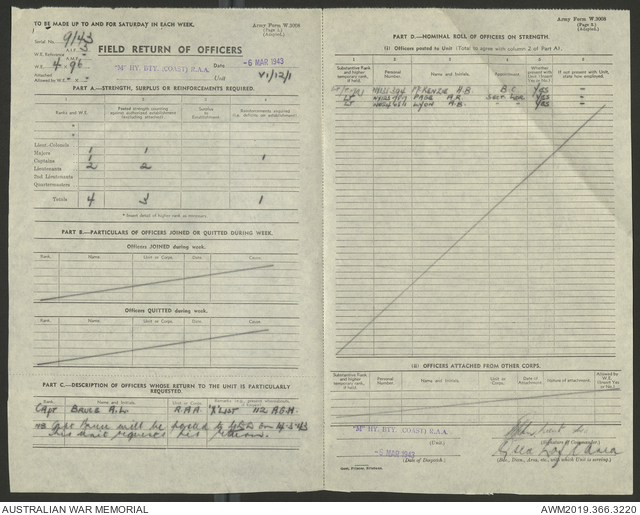 TO BE MADE UP TO AND FOR SATURDAY IN EACH WEEK.
Army Form W.3008
(Page 1.)
(Adapted.)
Serial No. 9/43
FIELD RETURN OF OFFICERS
W.E. 4 - 96
"M" HY. BTY. (COAST) R.A.A.
Unit
Date -6 MAR 1943
VI/12/1
Attached
Allowed by W.E.
PART A.—STRENGTH, SURPLUS OR REINFORCEMENTS REQUIRED.
1 2 3 4
Ranks and W.E.
Posted strength counting against authorized establishment (excluding attached).
Surplus to Establishment.
Reinforcements required (i.e. deficits on establishment).
Lieut. Colonels
Majors 1 1
Captains 1 1
Lieutenants 2 2
2nd Lieutenants
Quartermasters
Totals 4 3 1
* Insert detail of higher rank as necessary.
PART B.—PARTICULARS OF OFFICERS JOINED OR QUITTED DURING WEEK.
Officers JOINED during week.
Rank. Name. Unit or Corps. Date. Cause.
Officers QUITTED during week.
Rank. Name. Unit or Corps. Date. Cause.
PART C.—DESCRIPTION OF OFFICERS WHOSE RETURN TO THE UNIT IS PARTICULARLY REQUESTED.
Rank. Name. Unit or Corps.
Capt BRUCE A.L. R.A.A. "X" LIST 112 A.G.H.
NB Capt Bruce will be on 4-3-43
This unit requests his return.
Army Form W.3008
(Page 2.)
(Adapted.)
PART D.—NOMINAL ROLL OF OFFICERS ON STRENGTH.
(i) Officers posted to Unit (Total to agree with column 2 of Part A).
1 2 3 4 5 6
Substantive Rank and higher temporary rank, if held.
Personal Number.
Name and Initials.
Appointment.
Whether present with Unit (Yes or No)
If not present with Unit, state how employed.
McKENZIE H.B. B.C. YES -
LT PAGE A.R. YES -
LT LYON A.B. YES -
(ii) OFFICERS ATTACHED FROM OTHER CORPS.
Substantive Rank and higher temporary rank, if held.
Personal Number.
Name and Initials.
Unit or Corps.
Date of Attachment.
Nature of attachment.
Allowed by W.E. (Insert Yes or No.)
"M" HY. BTY. (COAST) R.A.A.
(Unit)
(Signature of Commander.)
-6 MAR 1943
(Date of Despatch.)
(Bde., Divn., Area, etc., with which Unit is serving.)
AUSTRALIAN WAR MEMORIAL
AWM2019.366.3220